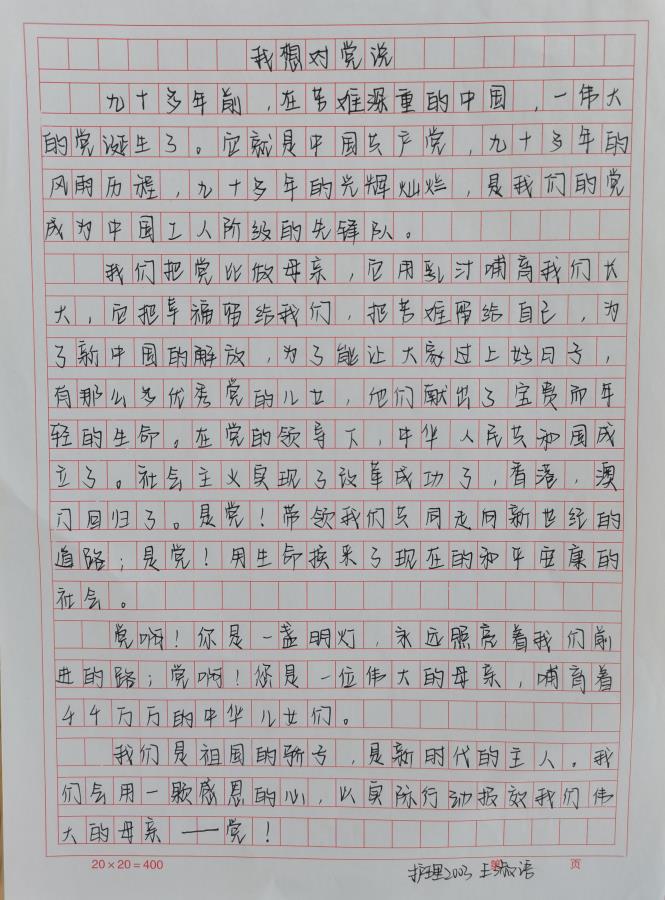 我想对党说
九十多年前，在苦难深重的中国，一伟大
的党诞生了。它就是中国共产党，九十多年的
风雨历程，九十多年的光辉灿烂，是我们的党
成为中国工人阶级的先锋队。
我们把党比做母亲，它用乳汁哺育我们长
大，它把幸福留给我们，把苦难留给自己，为
了新中国的解放，为了能让大家过上好日子，
有那么多优秀党的儿女，他们献出了宝贵而年
轻的生命。在党的领导下，中华人民共和国成
立了。社会主义实现了改革成功了，香港，澳
门回归了。是党！带领我们共同走向新世纪的
道路；是党！用生命换来了现在的和平安康的
社会。
党啊！你是一盏明灯，永远照亮着我们前
进的路；党啊！您是一位伟大的母亲，哺育着
千千万万的中华儿女们。
我们是祖国的骄子，是新时代的主人。我
们会用一颗感恩的心，以实际行动报效我们伟
大的母亲——党！
20×20=400 页
护理2003 王淑语